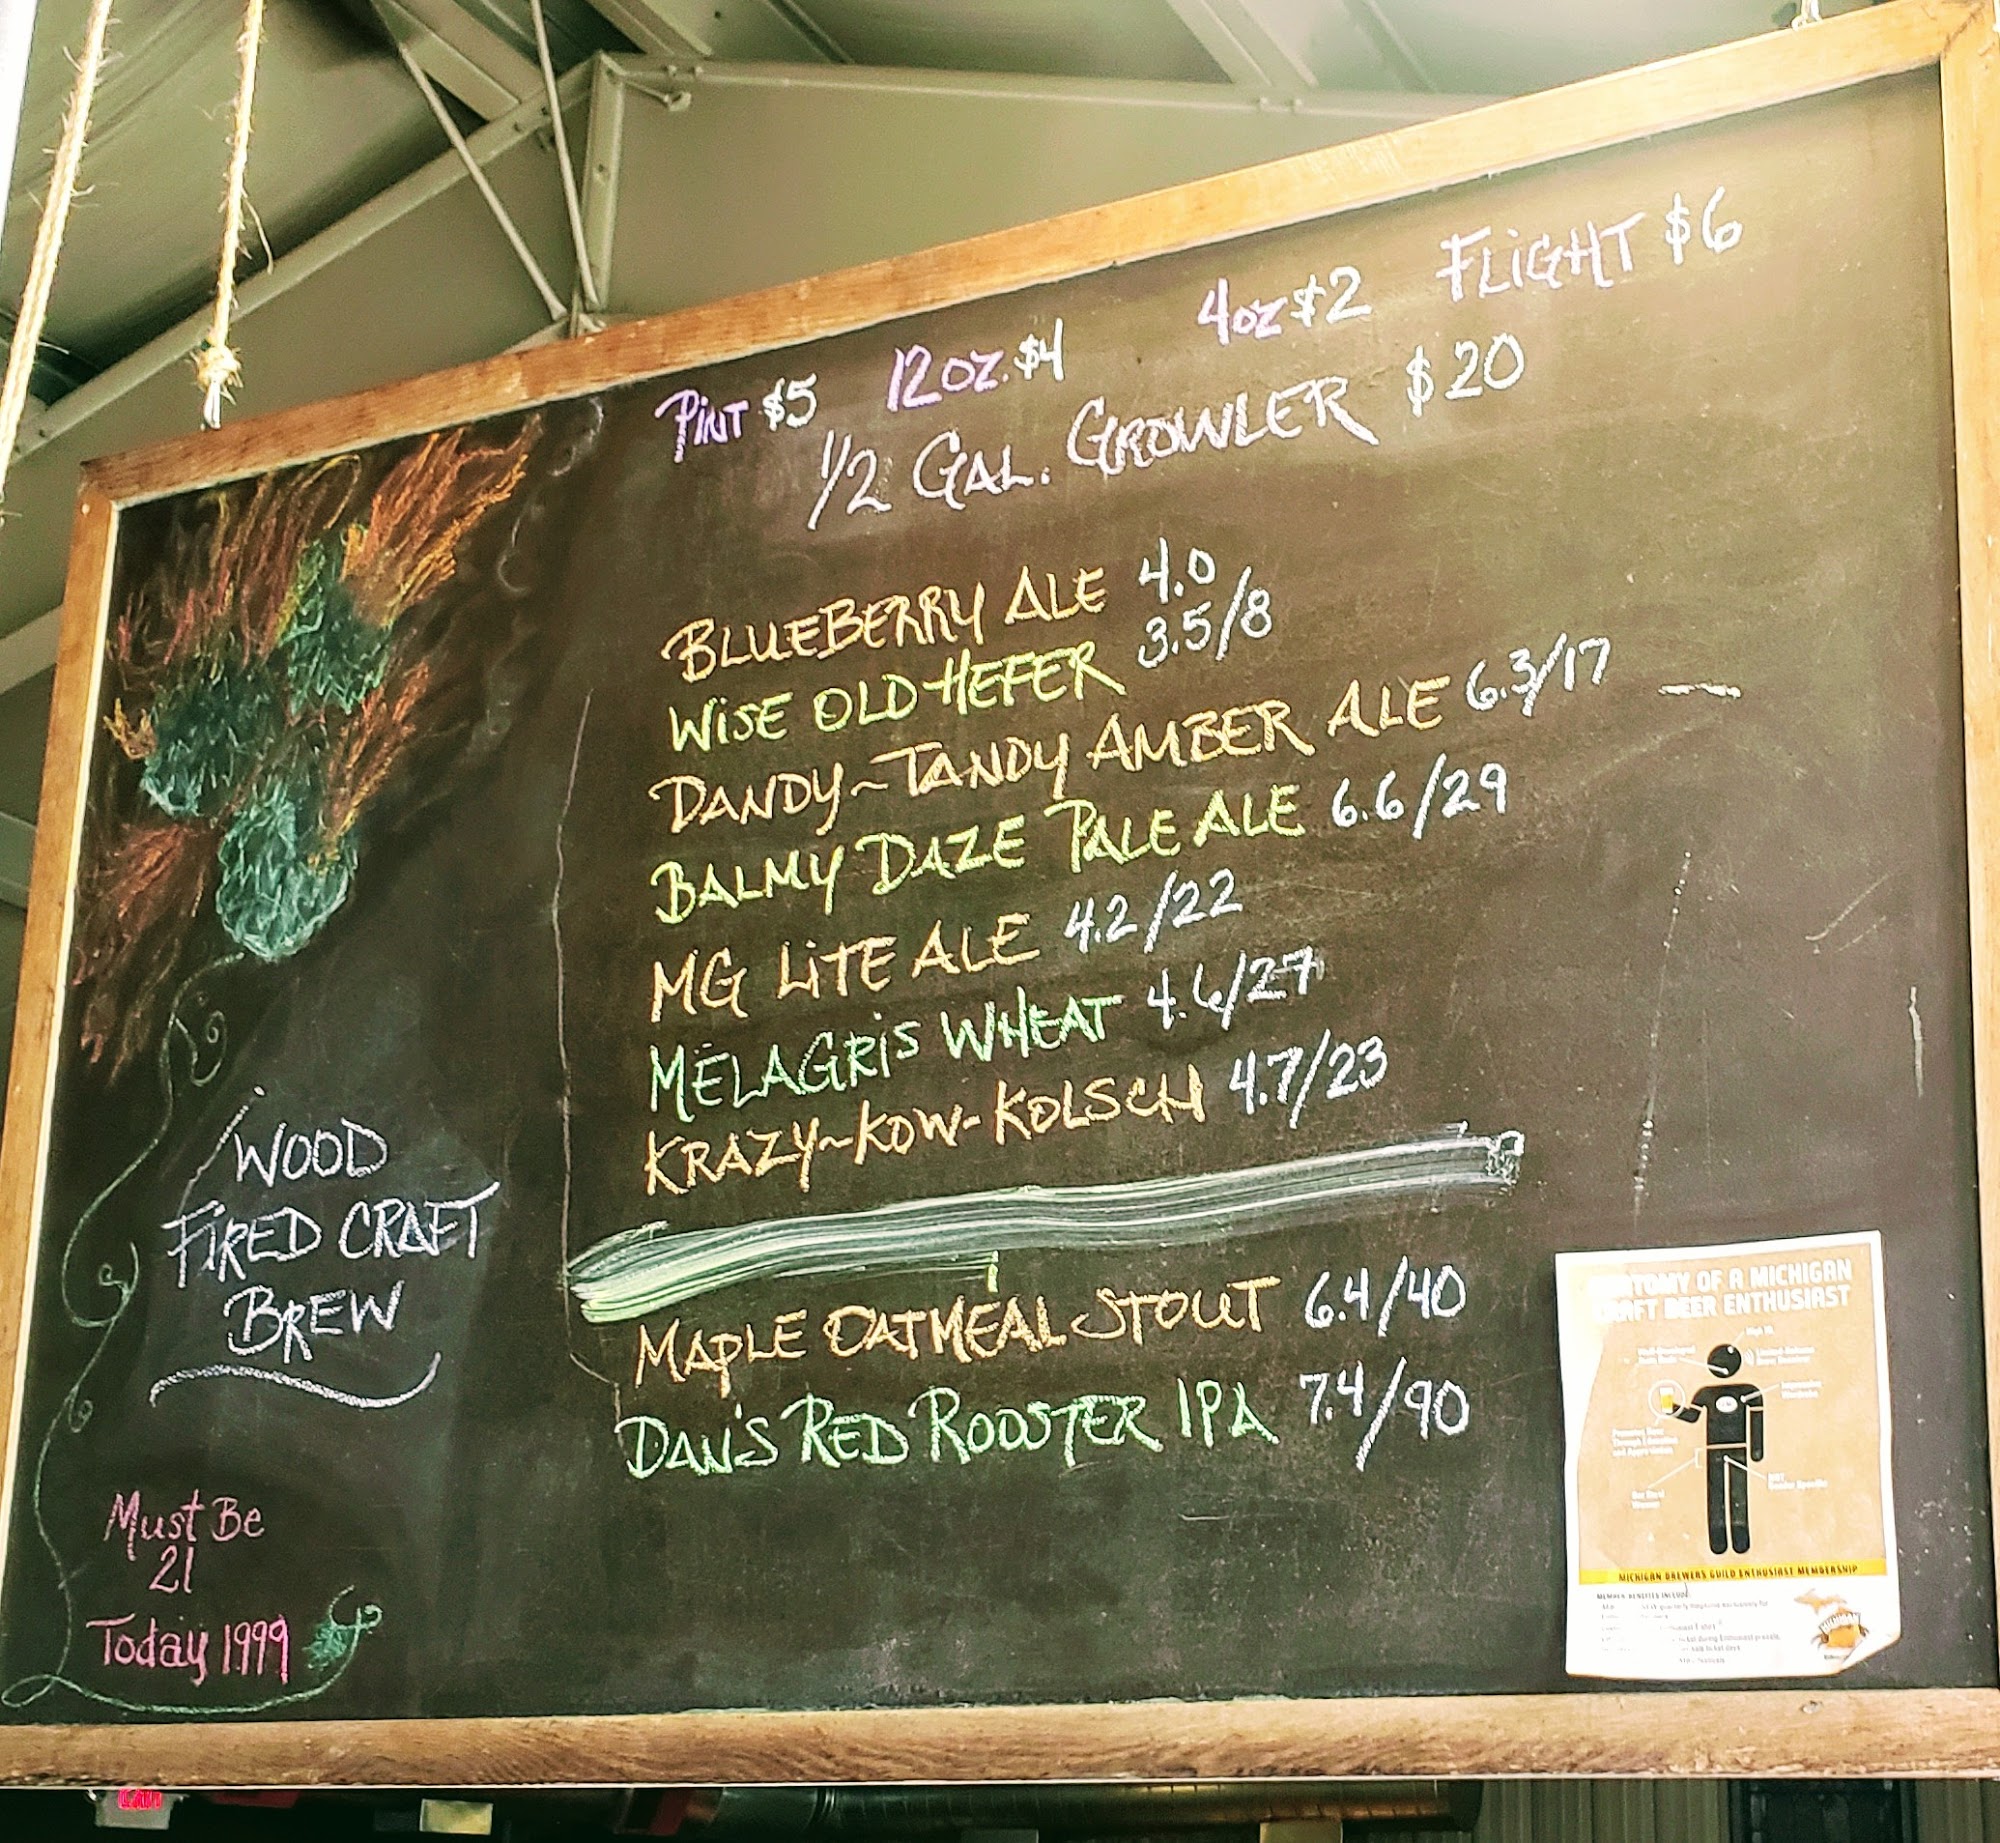 PINT $5 12OZ. $4 4OZ $2 FLIGHT $6
1/2 GAL. GROWLER $20
BLUEBERRY ALE 4.0
WISE OLD HEFER 3.5/8
DANDY~TANDY AMBER ALE 6.3/17
BALMY DAZE PALE ALE 6.6/29
MG LITE ALE 4.2/22
MELAGRIS WHEAT 4.6/27
KRAZY~KOW-KOLSCH 4.7/23
MAPLE OATMEAL STOUT 6.4/40
DAN'S RED ROOSTER IPA 7.4/90
WOOD
FIRED CRAFT
BREW
Must Be
21
Today 1999
OF A MICHIGAN
BEER ENTHUSIAST
MICHIGAN BREWERS GUILD ENTHUSIAST MEMBERSHIP
MEMBER BENEFITS INCLUDE: